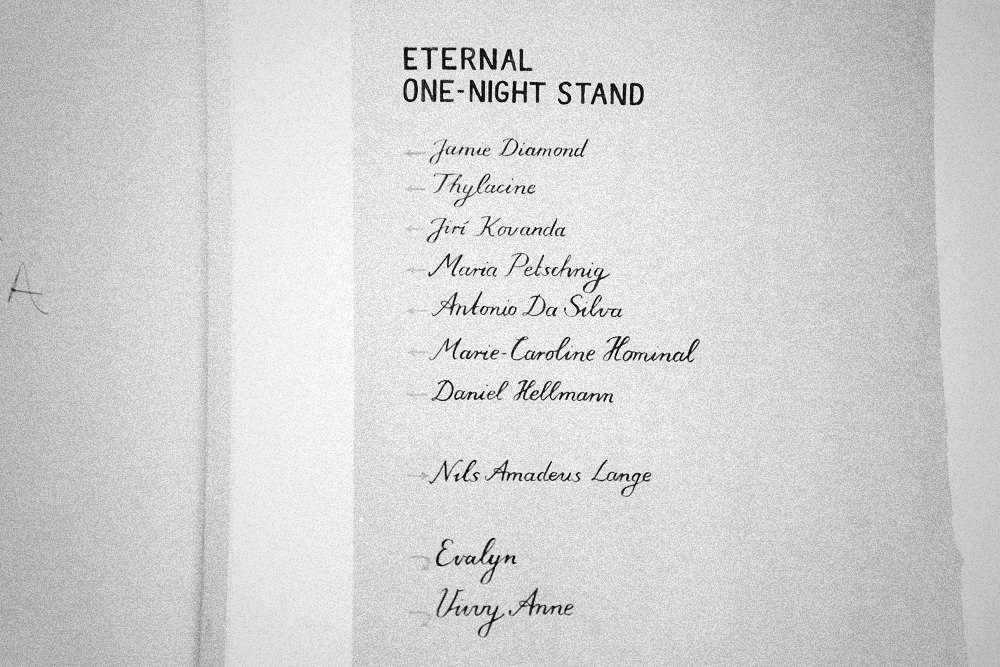 ETERNAL
ONE-NIGHT STAND
← Jamie Diamond
← Thylacine
← Jiří Kovanda
← Maria Petschnig
← Antonio Da Silva
← Marie-Caroline Hominal
← Daniel Hellmann
→ Nils Amadeus Lange
Evalyn
Vivvy Anne
A